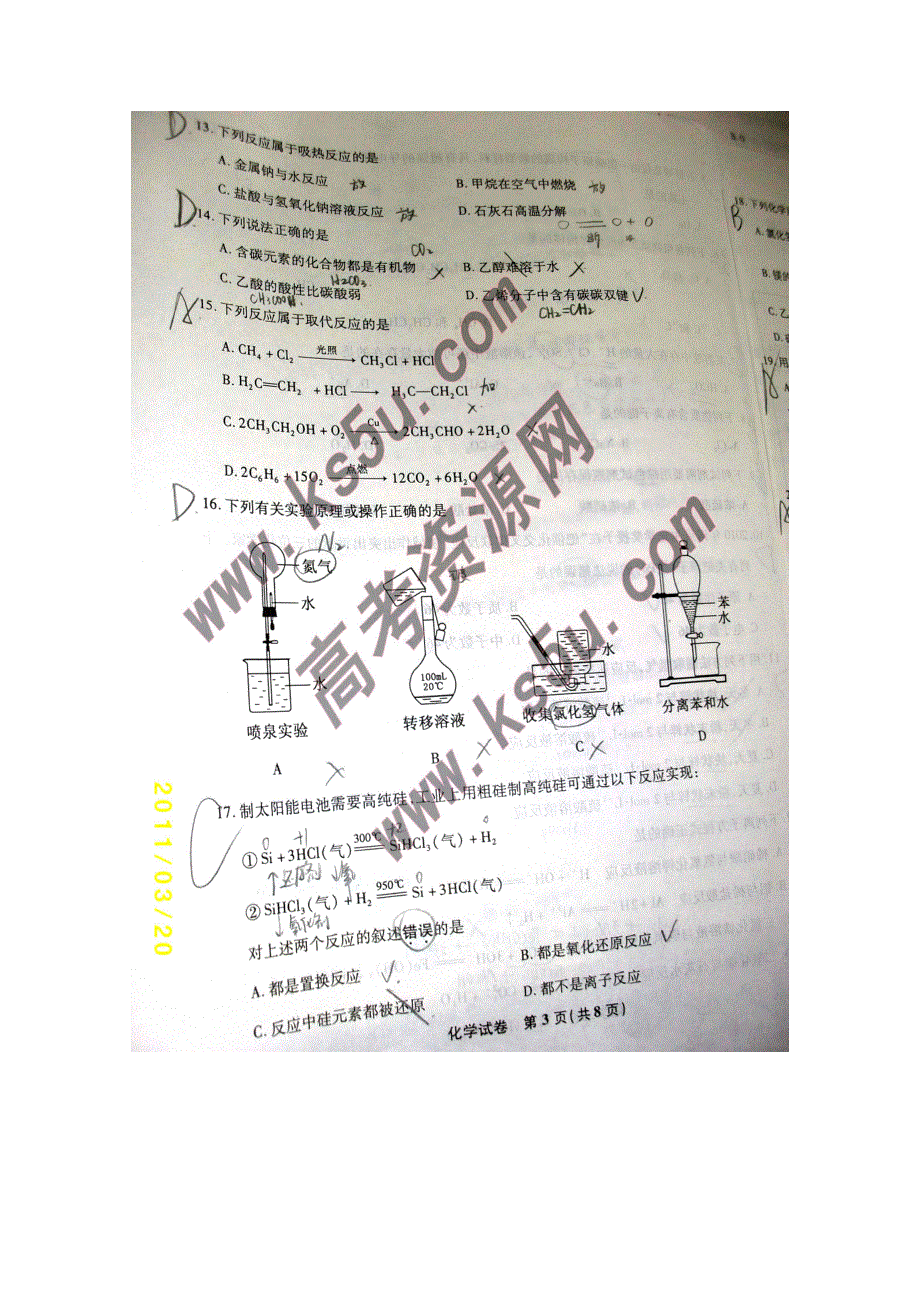 D 13. 下列反应属于吸热反应的是
A. 金属钠与水反应 放 B. 甲烷在空气中燃烧 放
C. 盐酸与氢氧化钠溶液反应 放 D. 石灰石高温分解
D 14. 下列说法正确的是
A. 含碳元素的化合物都是有机物 CO₂ × B. 乙醇难溶于水 ×
C. 乙酸的酸性比碳酸弱 H₂CO₃ D. 乙烯分子中含有碳碳双键 √
CH₃COOH CH₂=CH₂
A 15. 下列反应属于取代反应的是
A. CH₄ + Cl₂ —光照→ CH₃Cl + HCl
B. H₂C=CH₂ + HCl ⟶ H₃C—CH₂Cl 加 ×
C. 2CH₃CH₂OH + O₂ —Cu/△→ 2CH₃CHO + 2H₂O ×
D. 2C₆H₆ + 15O₂ —点燃→ 12CO₂ + 6H₂O ×
D 16. 下列有关实验原理或操作正确的是
N₂
氮气
水
水
喷泉实验
A ×
100mL
20℃
转移溶液
B ×
水
收集氯化氢气体
C ×
苯
水
分离苯和水
D
C 17. 制太阳能电池需要高纯硅,工业上用粗硅制高纯硅可通过以下反应实现:
0 +1 +2 0
①Si + 3HCl(气) =300℃= SiHCl₃(气) + H₂
↑还原剂
②SiHCl₃(气) + H₂ =950℃= Si + 3HCl(气)
↓氧化剂
对上述两个反应的叙述错误的是
A. 都是置换反应 √ B. 都是氧化还原反应 √
C. 反应中硅元素都被还原 D. 都不是离子反应
化学试卷 第3页(共8页)
18. 下列化学
B
A. 氯化
B. 镁的
C. 乙
D.
19. 用
A
www.ks5u.com
高考资源网
www.ks5u.com
2011/03/20